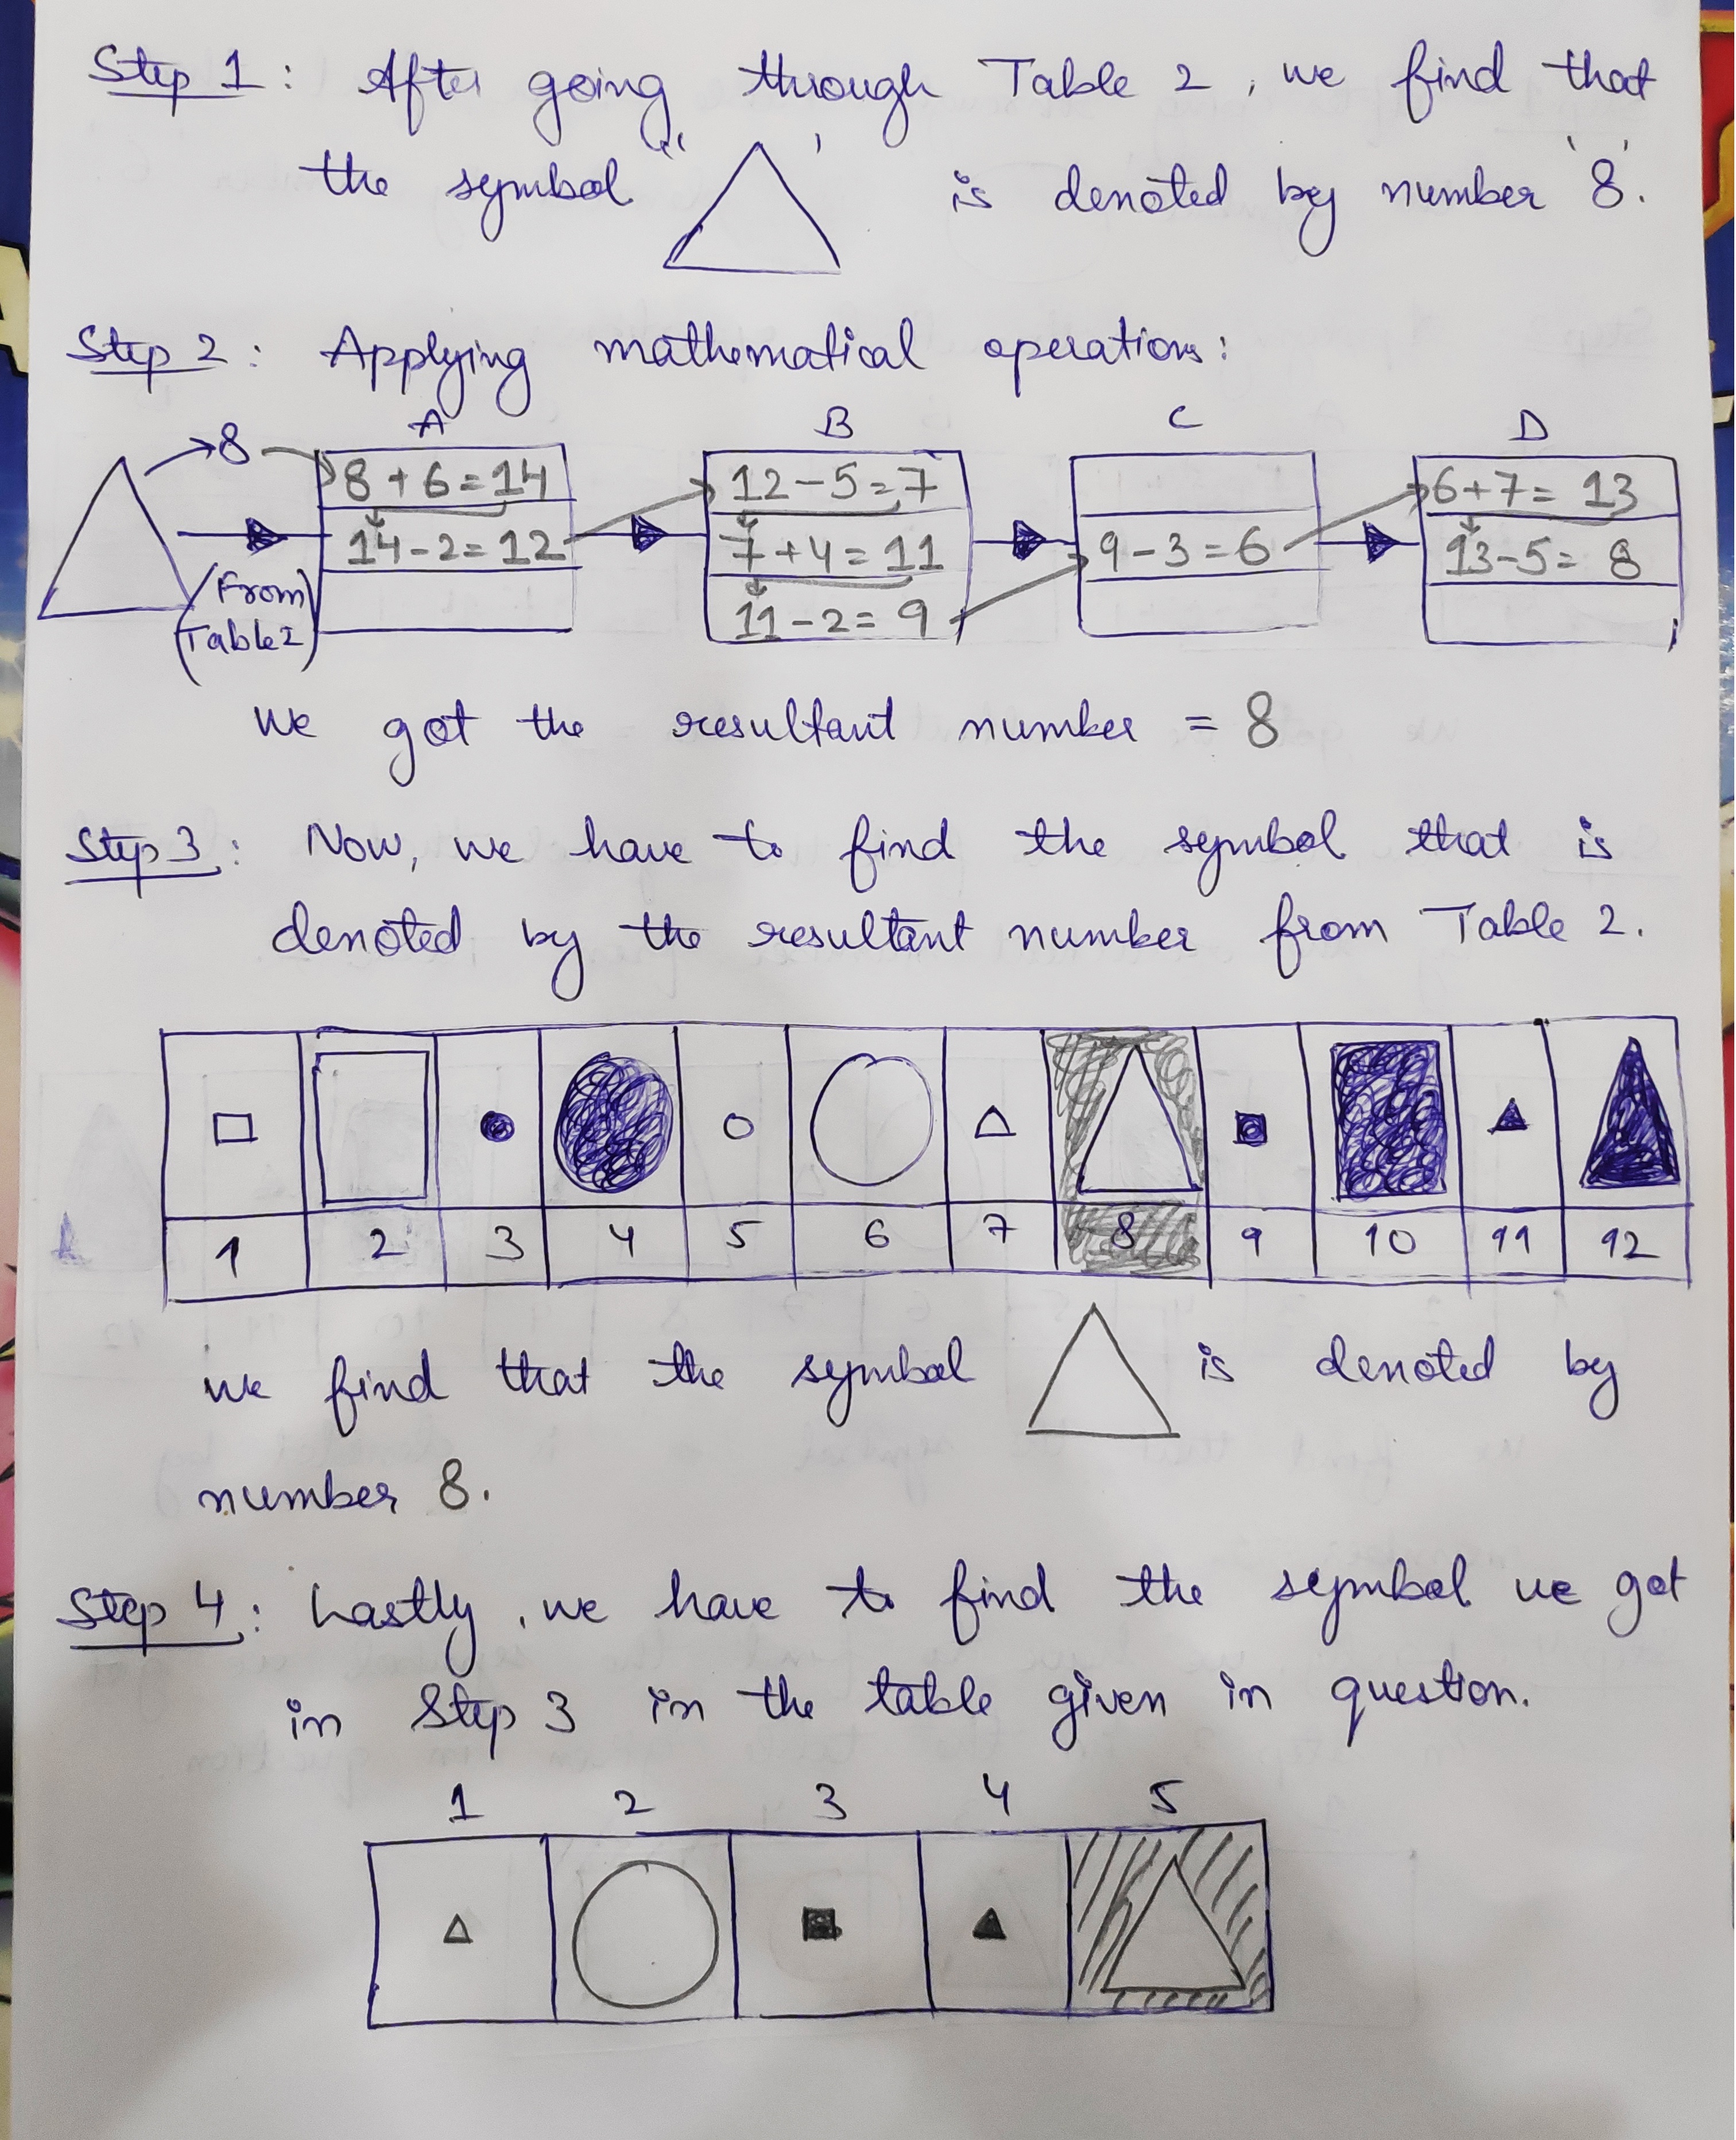 Step 1: After going through Table 2, we find that
the symbol " ' is denoted by number '8'.
Step 2: Applying mathematical operations:
A B C D
8 8+6=14 12-5=7 6+7= 13
14-2=12 7+4=11 9-3=6 13-5= 8
(From Table 2) 11-2= 9
we got the resultant number = 8
Step 3: Now, we have to find the symbol that is
denoted by the resultant number from Table 2.
1 2 3 4 5 6 7 8 9 10 11 12
we find that the symbol is denoted by
number 8.
Step 4: Lastly, we have to find the symbol we got
in Step 3 in the table given in question.
1 2 3 4 5